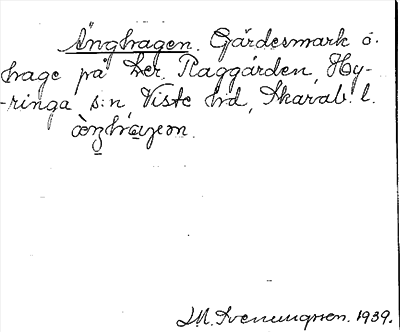 Änghagen. Gärdesmark o.
hage på her. Raggården, Hy-
-ringa s:n, Viste hd, Skarab. l.
J.M. Svenungsson. 1939.